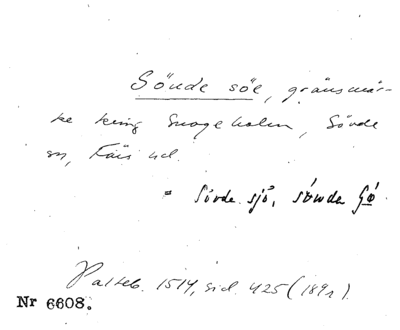 Sönde söe, gränsmär-
ke kring Snogeholm, Sövde
sn, Färs hd.
= Sövde sjö,
Palteb. 1514, sid. 425 (1892).
Nr 6608.